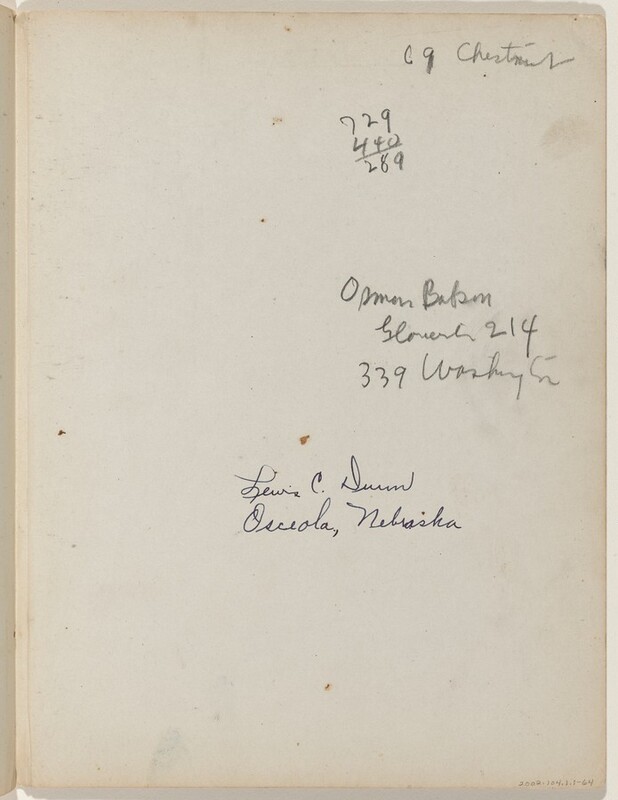 69 Chestnut
729
440
289
Osmon Babson
Gloucester 214
339 Washington
Lewis C. Dunn
Osceola, Nebraska
2002.104.1.1-64